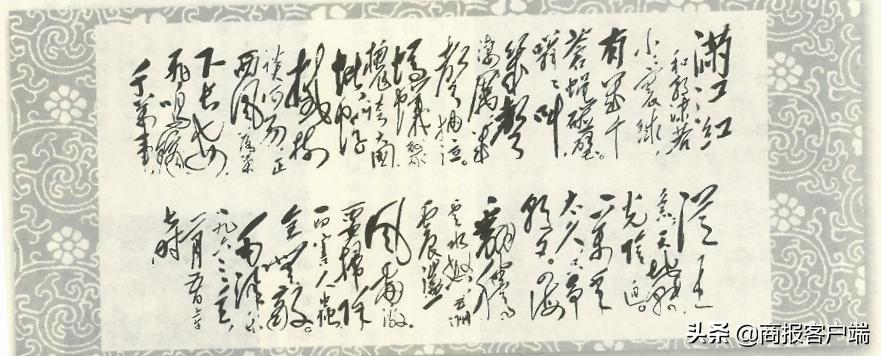 滿江红
和郭沫若
小小寰球,
有几个
苍蝇碰壁。
嗡嗡叫
几声
凄厉几
声抽泣。
蚂蚁缘
槐夸大国
蚍蜉
撼树
谈何易。正
西风落葉
下长安,
飞鸣镝
千万事,
从来
急。天地转,
光阴迫。
一万年
太久,只争
朝夕。四海
翻腾
云水怒,五洲
震荡
风雷激。
要掃除
一切害人虫
全無敌。
毛泽东
一九六三年
二月五日上午
时
头条 @商报客户端